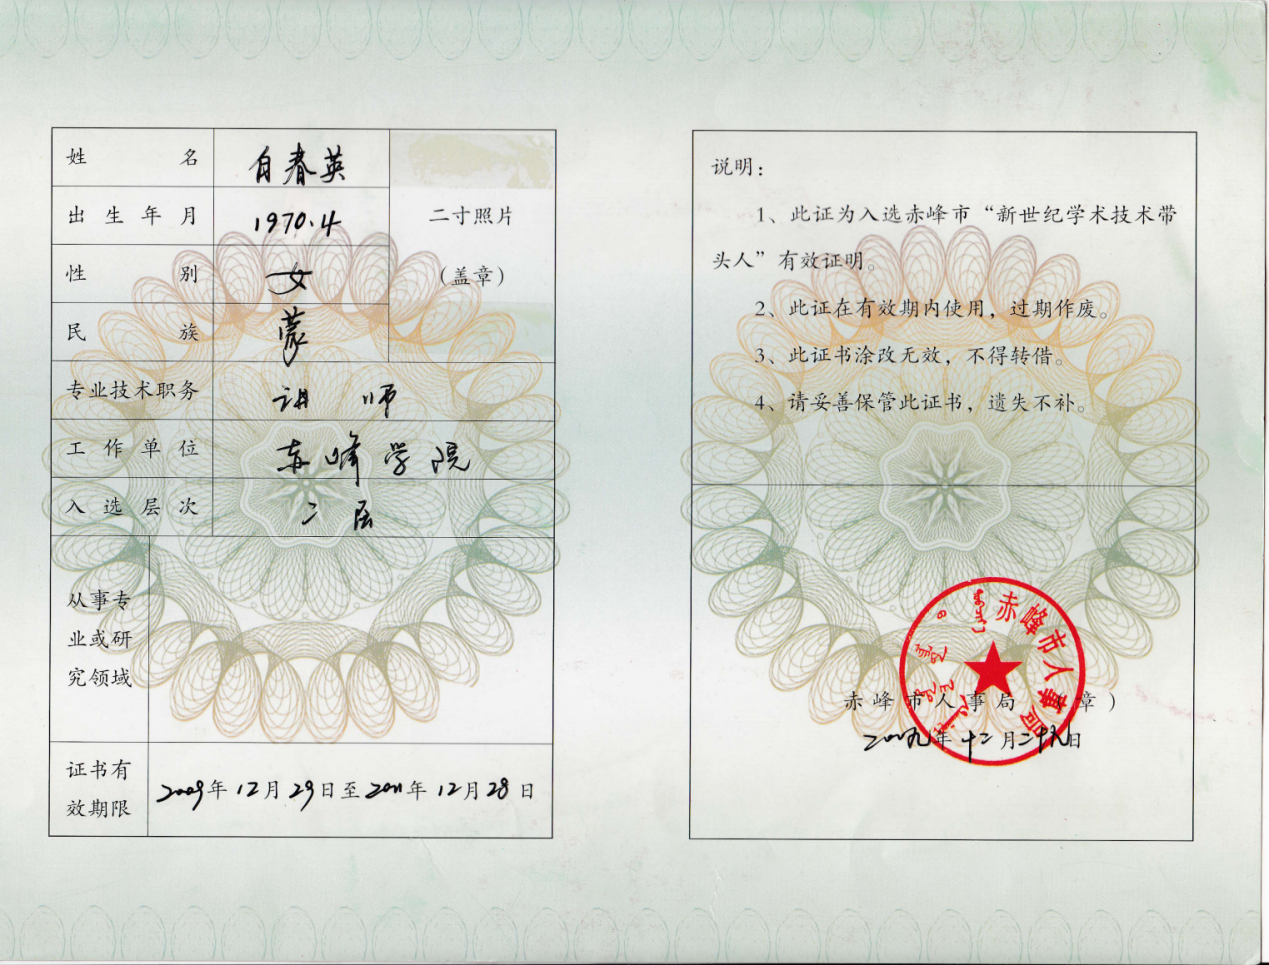 姓名 白春英
出生年月 1970.4
性别 女
民族 蒙
二寸照片
（盖章）
专业技术职务 讲师
工作单位 赤峰学院
入选层次 二层
从事专
业或研
究领域
证书有
效期限
2009年12月29日至2011年12月28日
说明：
1、此证为入选赤峰市“新世纪学术技术带
头人”有效证明。
2、此证在有效期内使用，过期作废。
3、此证书涂改无效，不得转借。
4、请妥善保管此证书，遗失不补。
赤峰市人事局
赤峰市人事局（章）
二00九年十二月二十九日